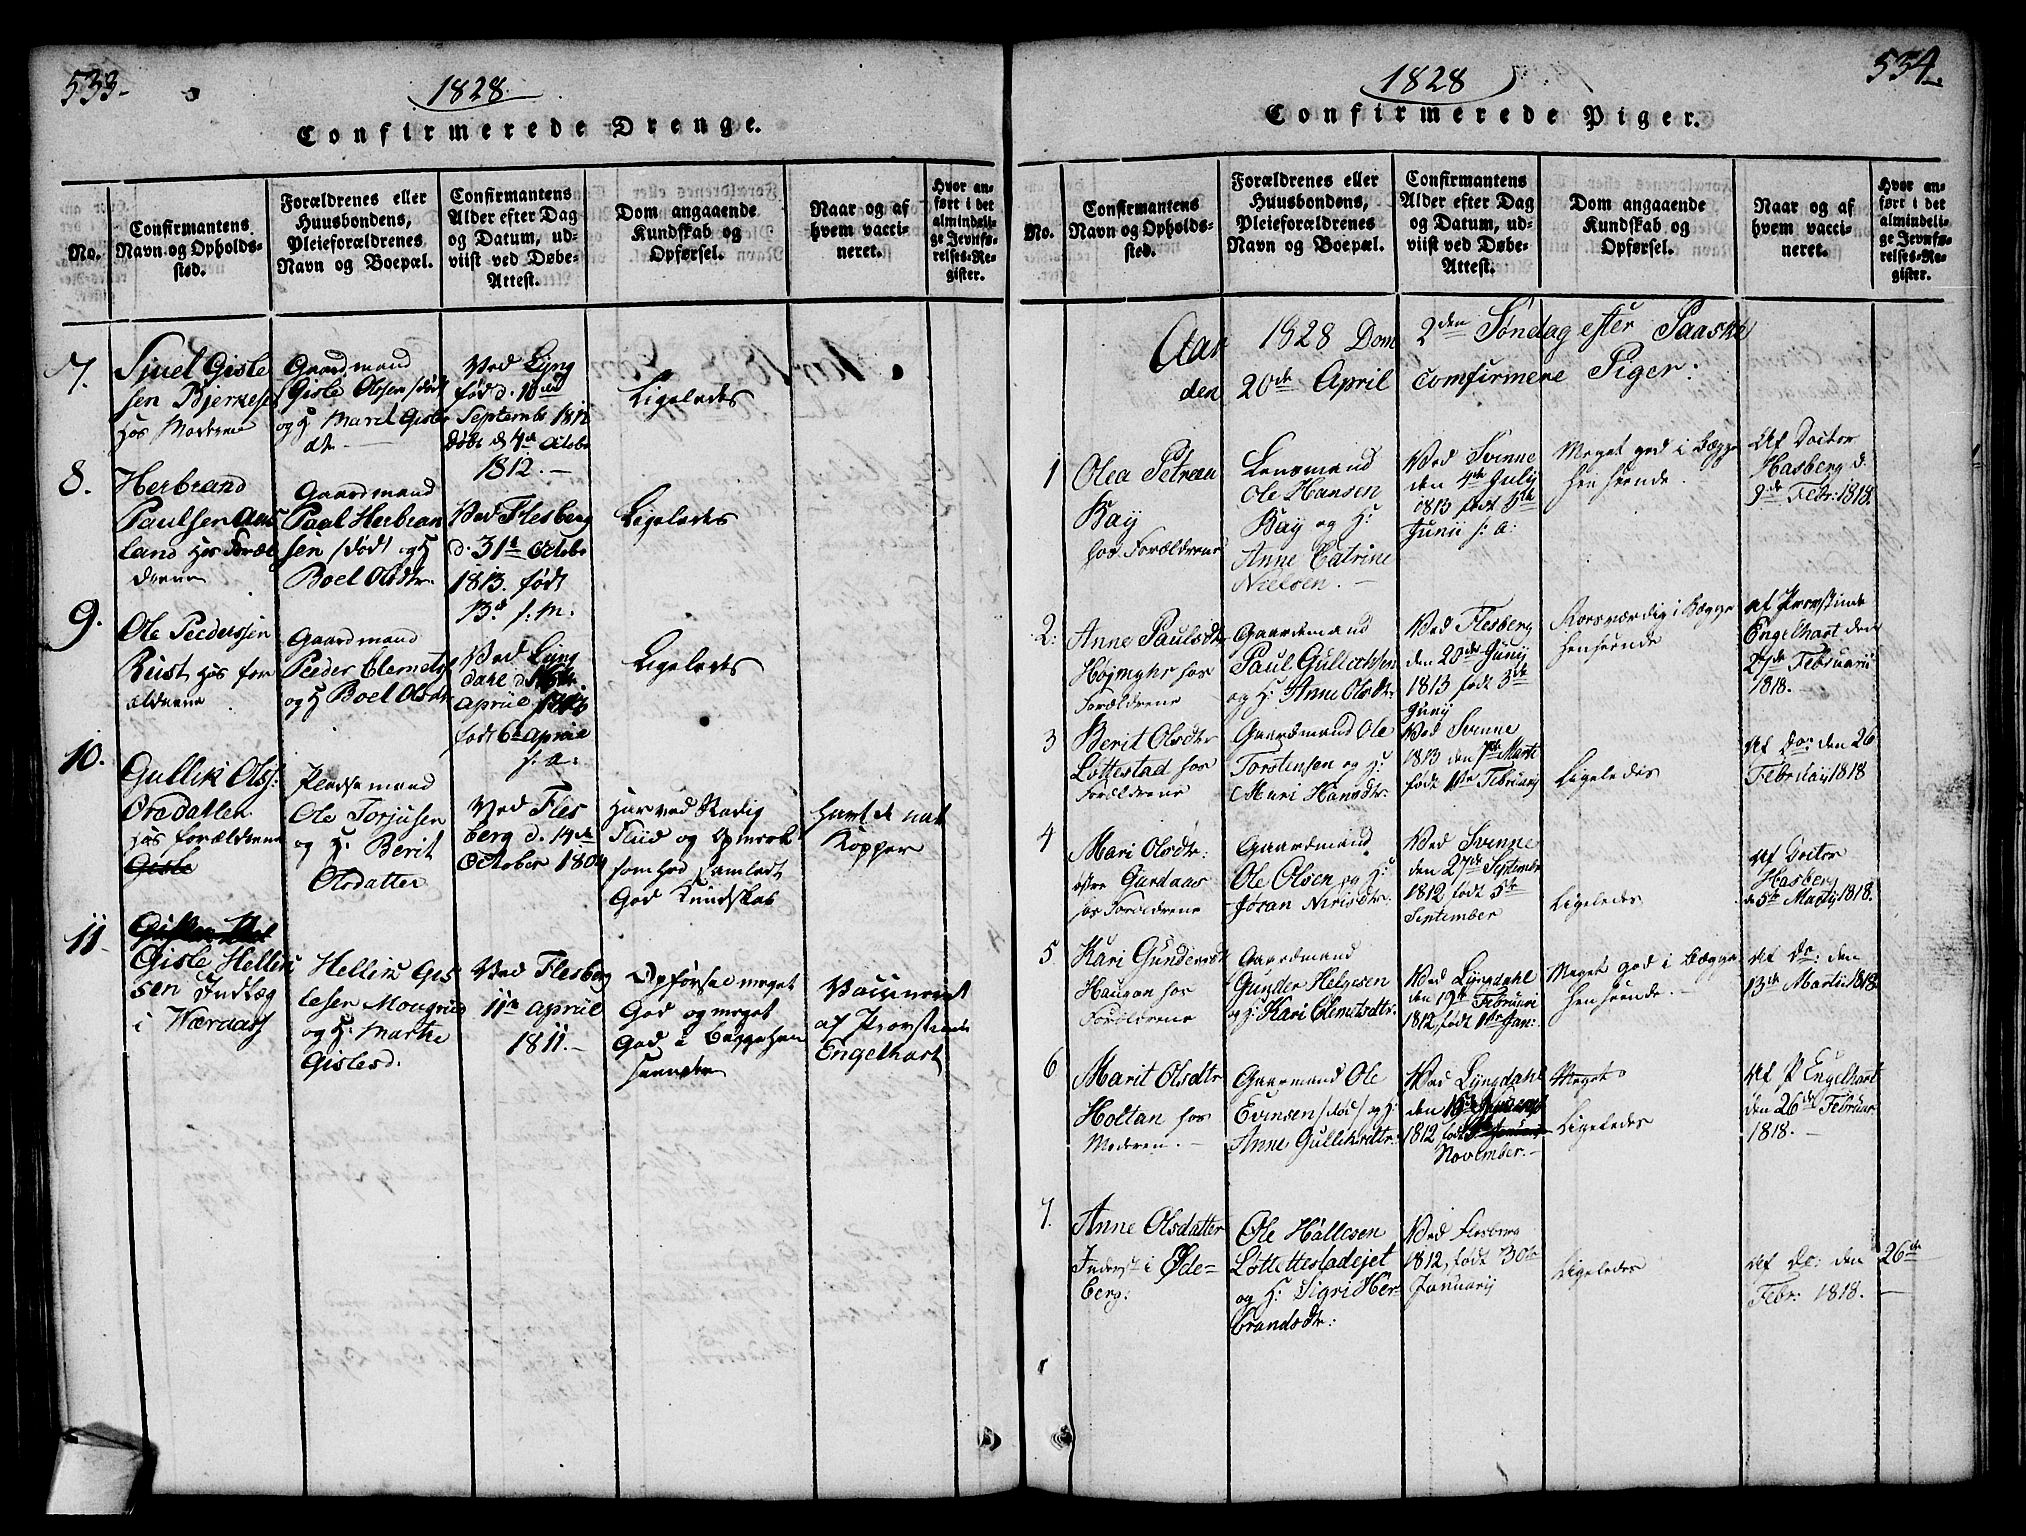 533.
1828.
Confirmerede Drenge.
No.
Confirmantens
Navn og Opholds-
sted.
Forældrenes eller
Huusbondens,
Pleieforældrenes
Navn og Boepæl.
Confirmantens
Alder efter Dag
og Datum, ud-
viist ved Døbe-
Attest.
Dom angaaende
Kundskab og
Opførsel.
Naar og af
hvem vacci-
neret.
Hvor an-
ført i det
almindeli-
ge Jevnfø-
relses-Re-
gister.
7.
Sjuel Gisle
sen Bjerkese
hos Moderen
Gaardmand
Gisle Olssen /død/
og H. Marit Gisle
dt.
Ved Lyng
fød d. 10de
Septembr 1812
døbt d 4de Octobr
1812.-
Ligeledes
8.
Herbrand
Paulsen Aas
land hos Foræl
drene
Gaardmand
Paal Herbran
sen /død/ og H
Boel Olsdtr.
Ved Flesberg
d. 31te Octobr
1813. født
13de s: m.
Ligeledes
9.
Ole Peederssen
Rust hos for
ældrene
Gaardmand
Peder Clemets
og H Boel Olsdtr
Ved Lyng
dahl d.
Apriil
født 6te Apriil
s: a:
Ligeledes
10.
Gullik Olss:
Øvedatten
hos forældrene
Gisle
Pladsemand
Ole Torjusen
og H: Berit
Olsdatter
Ved Fles
berg d. 14de
October 1809
har ved Stadig
Fliid og Opmærk
somhed samlet
God Kundskab
Havt de nat
Kopper
11.
Gisle Hellik
sen Indlæg
i Wærdaas
Hellik Gis
lesen Mougrud
og H: Marthe
Gislesd.
Ved Flesberg
11te Apriil
1811.-
Opførsel meget
God og meget
God i begge hen
seender
Vaccineret
af Provstinde
Engelhart
534.
1828
Confirmerede Piger.
No.
Confirmantens
Navn og Opholds-
sted.
Forældrenes eller
Huusbondens,
Pleieforældrenes
Navn og Boepæl.
Confirmantens
Alder efter Dag
og Datum, ud-
viist ved Døbe-
Attest.
Dom angaaende
Kundskab og
Opførsel.
Naar og af
hvem vacci-
neret.
Hvor an-
ført i det
almindeli-
ge Jevnfø-
relses-Re-
gister.
Aar 1828 Dom 2den Søndag efter Paaske
den 20de April comfirmere Piger:
1
Olea Petrea
Bay
hos Forældrene
Lensmand
Ole Hansen
Bay og H:
Anne Catrine
Nielsen.-
Ved Svenne
den 4de July
1813 født 5te
Junii s: a:
Meget god i Begge
henseende.
Af Doctor
Hasberg d.
9de Febr: 1818.
2:
Anne Paulsdtr
Højmyhr hos
Forældrene
Gaardemand
Paul Gulleksen
og H: Anne Olsdtr
Ved Flesberg
den 20de Juny
1813 født 3de
Juny
Roesværdig i Begge
henseende
af Provstinde
Engelhart den
27de Februarii
1818.-
3
Berit Olsdtr
Lottestad hos
Forældrene
Gaardemand Ole
Torstensen og H:
Mari Hansdtr.
Ved Svenne
1813 den 7de Marti
født 1te Februarij
Ligeledes
Af Do: den 26
Februaij 1818
4
Mari Olsdtr:
østre Gardaas
hos Forældrene
Gaardemand
Ole Olsen og H:
Jøran Nirisdtr.
Ved Svenne
den 27de September
1812 født 5te
September
Ligeledes
Af Doctor
Hasberg
d 5te Martij 1818.
5
Kari Gundersdt
Haugan hos
Forældrene
Gaardemand
Gunder Helgesen
og H: Kari Clemetsdtr.
Ved Lyngdahl
den 19de Februari
1812, født 1te Jan:
Meget god i Begge
henseende.-
Af Do: den
13de Martii 1818
6
Marit Olsdtr
Holtan hos
Moderen.-
Gaarmand Ole
Evensen /død/ og H:
Anne Gulliksdtr.
Ved Lyngdahl
den
1812 født
November.-
Meget
Ligeledes
Af P Engelhart
den 26de Februar
1818.-
7.
Anne Olsdatter
Inderst i Øde=
berg:
Ole Hallesen
Løttestadejet
og H: Sigri Her-
brandsdtr:
Ved Flesberg
1812, født 30te
Januarij
Ligeledes
Af Do: den 26de
Febr: 1818.-